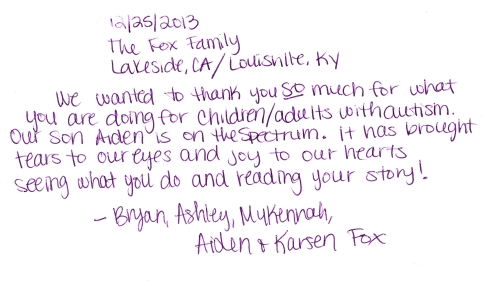 12/25/2013
The Fox Family
Lakeside, CA/Louisville, Ky
We wanted to thank you so much for what
you are doing for children/adults with autism.
Our son Aiden is on the Spectrum. it has brought
tears to our eyes and joy to our hearts
seeing what you do and reading your story!
- Bryan, Ashley, MyKennah,
Aiden & Karsen Fox